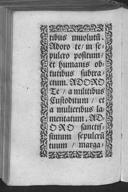 tibus inuolutũ.
Adoro te in se
pulcro positum:
et humanis ob
tutibus subtra
ctum. ADORO
Te / a militibus
Custoditum / et
a mulieribus la
mentatum. AD
ORO sanctis
simum sepulcrũ
tuum / marga